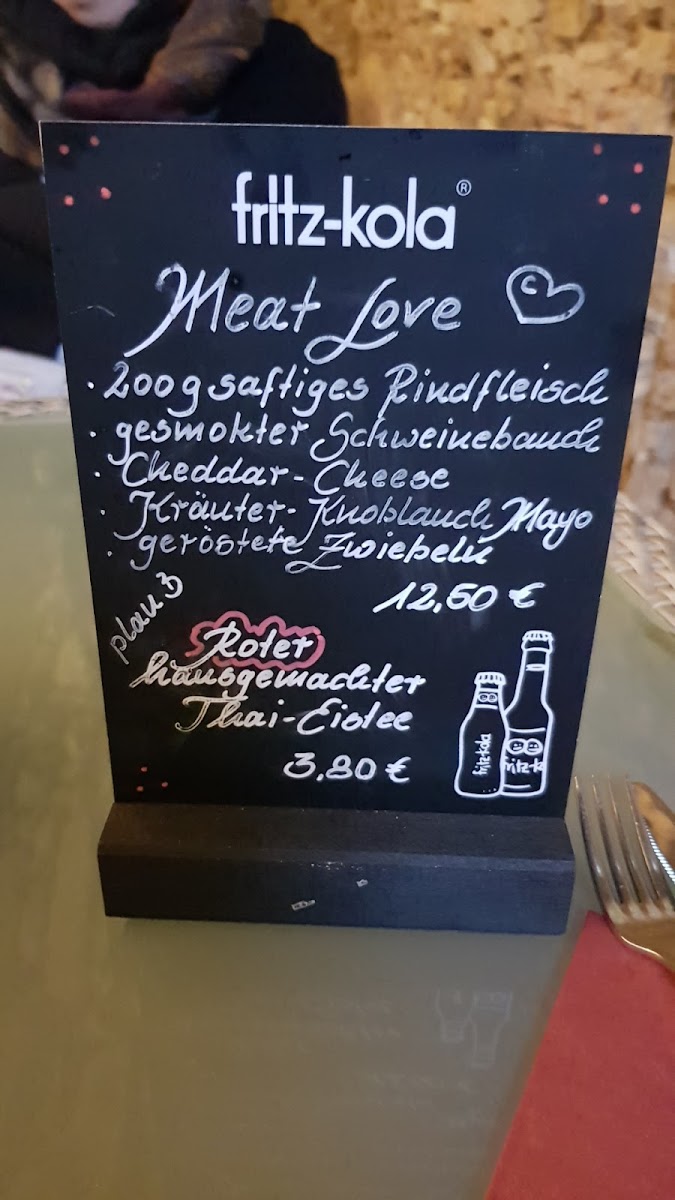 fritz-kola®
Meat Love
· 200g saftiges Rindfleisch
· gesmokter Schweinebauch
· Cheddar-Cheese
· Kräuter-Knoblauch Mayo
· geröstete Zwiebeln
12,50 €
plan 3
Roter
hausgemachter
Thai-Eistee
3,80 €
fritz-kola
fritz-k